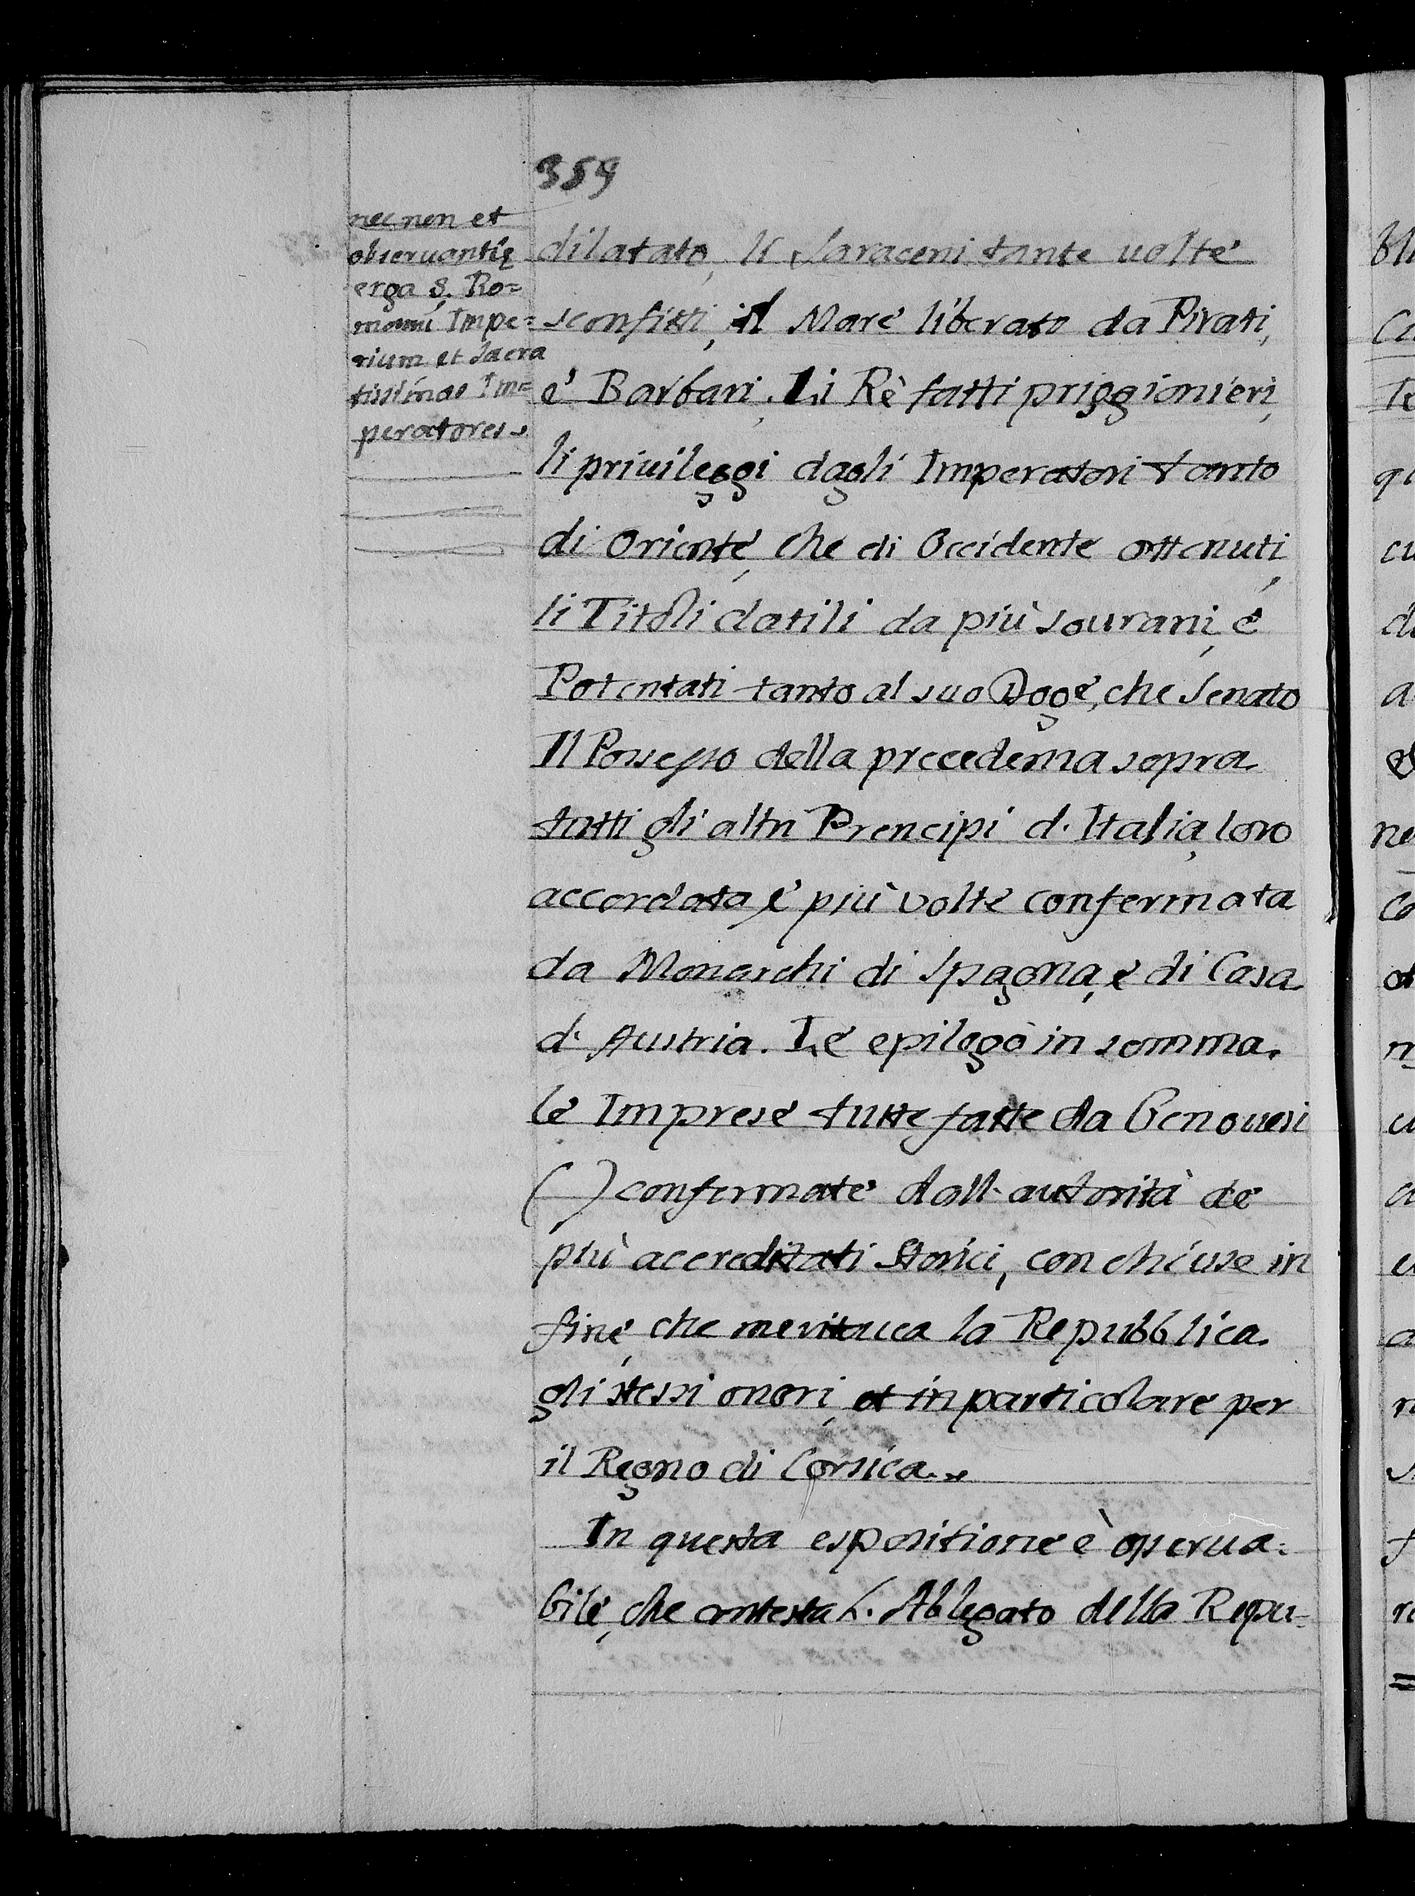 359
nec non et
obseruantię
erga S. Ro=
manū Impe=
rium et Sacra
tissimos Im=
peratores.
dilatato, li Saraceni tante uolte
sconfitti, il Mare liberato da Pirati,
e' Barbari. Li Rè fatti priggionieri,
li priuileggi dagli Imperatori tanto
di Oriente, che di Occidente ottenuti,
li Titoli datili da più sourani, e
Potentati tanto al suo Doge, che Senato
Il Possesso della precedenza sopra
tutti gli altri Prencipi d. Italia, loro
accordata, e' più volte confermata
da Monarchi di Spagna, e di Casa
d. Austria. Le epilogò in somma.
le Imprese tutte fatte da Genouesi
( ) confermate dall. autorità de
più accreditati Storici, conchiuse in
fine, che meritaua la Repubblica
gli stessi onori, et in particolare per
il Regno di Corsica.
In questa espositione è osserua=
bile, che contesta l. Ablegato della Repu-